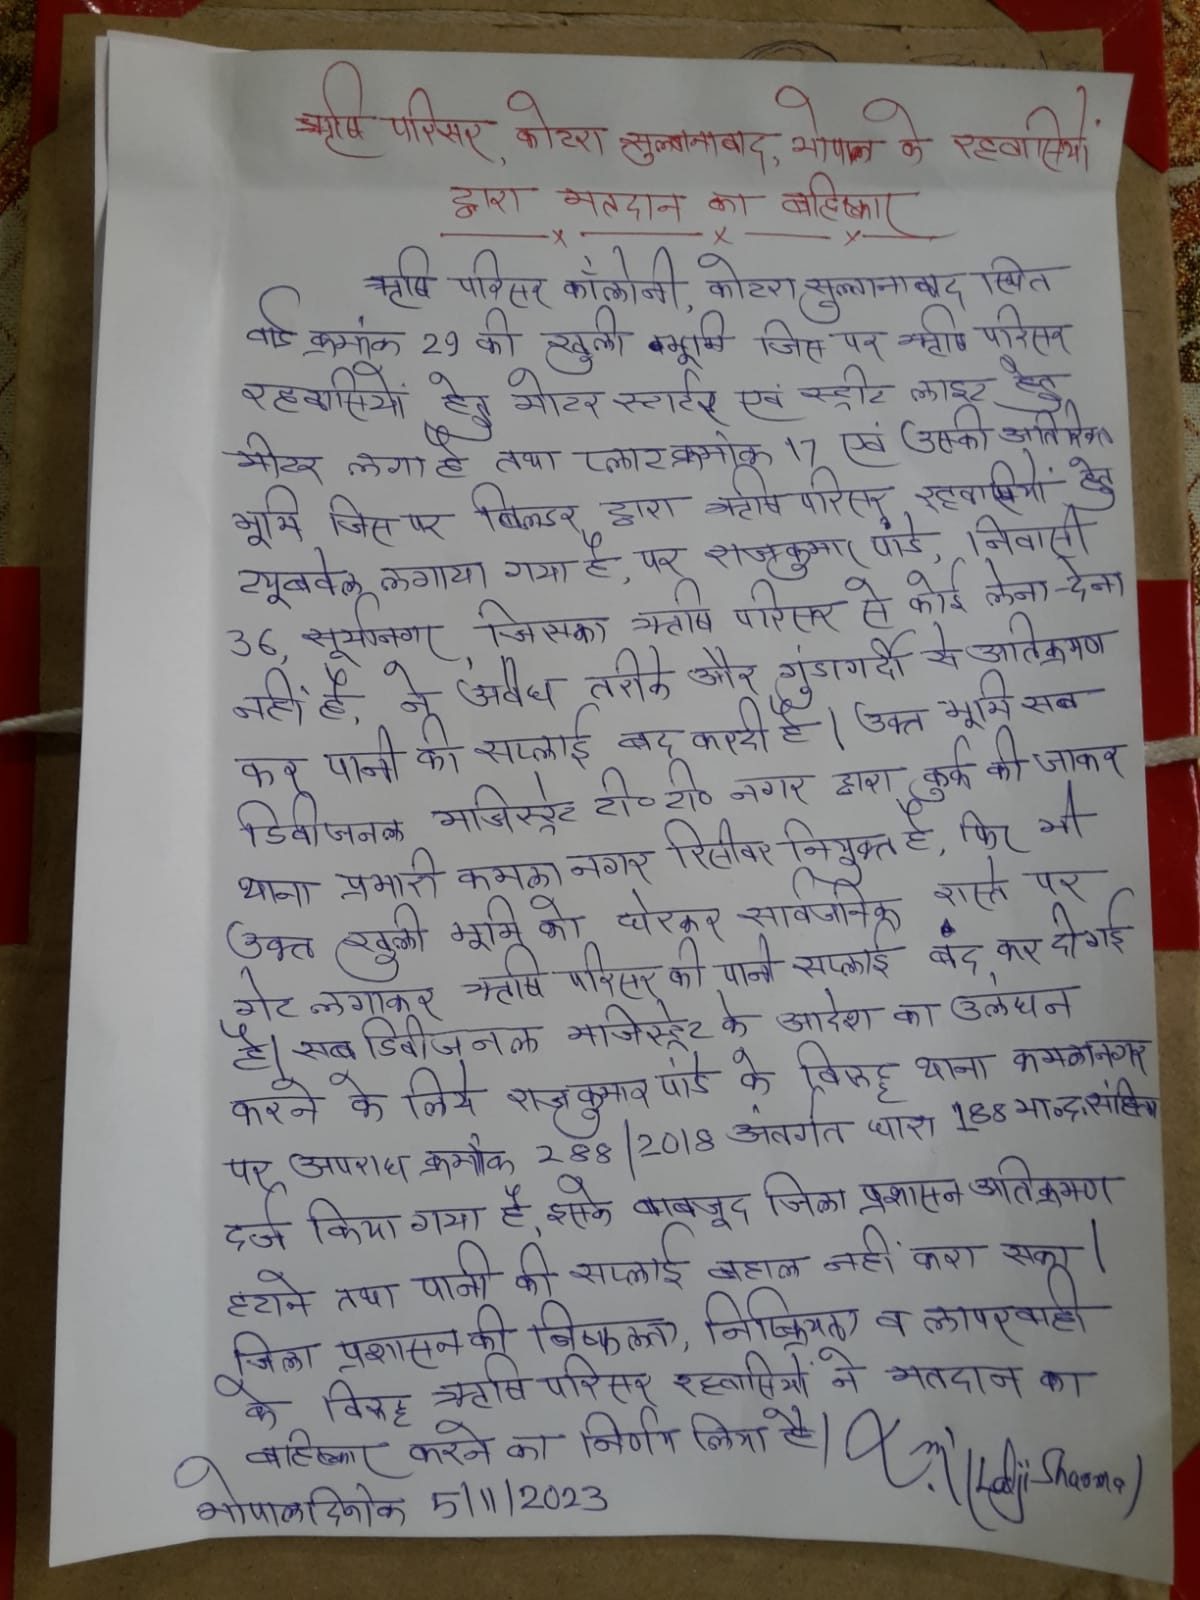 ऋषि परिसर, कोटरा सुल्तानाबाद, भोपाल के रहवासियों
द्वारा मतदान का बहिष्कार
ऋषि परिसर कॉलोनी, कोटरा सुल्तानाबाद स्थित
वार्ड क्रमांक 29 की खुली भूमि जिस पर ऋषि परिसर
रहवासियों हेतु मोटर स्टार्टर एवं स्ट्रीट लाइट हेतु
मीटर लगा है तथा प्लाट क्रमांक 17 एवं उसकी अतिरिक्त
भूमि जिस पर बिल्डर द्वारा ऋषि परिसर रहवासियों हेतु
ट्यूबवेल लगाया गया है, पर राजकुमार पांडे, निवासी
36, सूर्यानगर, जिसका ऋषि परिसर से कोई लेना-देना
नहीं है, ने अवैध तरीके और गुंडागर्दी से अतिक्रमण
कर पानी की सप्लाई बंद करदी है। उक्त भूमि सब
डिवीजनल मजिस्ट्रेट टी० टी० नगर द्वारा कुर्क की जाकर
थाना प्रभारी कमला नगर रिसीवर नियुक्त है, फिर भी
उक्त खुली भूमि को घेरकर सार्वजनिक रास्ते पर
गेट लगाकर ऋषि परिसर की पानी सप्लाई बंद कर दी गई
है। सब डिवीजनल मजिस्ट्रेट के आदेश का उलंघन
करने के लिये राजकुमार पांडे के विरूद्ध थाना कमलानगर
पर अपराध क्रमांक 288/2018 अंतर्गत धारा 188 भा.द.संहिता
दर्ज किया गया है, इसके बाबजूद जिला प्रशासन अतिक्रमण
हटाने तथा पानी की सप्लाई बहाल नहीं करा सका।
जिला प्रशासन की निष्फलता, निष्क्रियता व लापरवाही
के विरूद्ध ऋषि परिसर रहवासियों ने मतदान का
बहिष्कार करने का निर्णय लिया है। (Ladji Sharma)
भोपाल दिनांक 5/11/2023